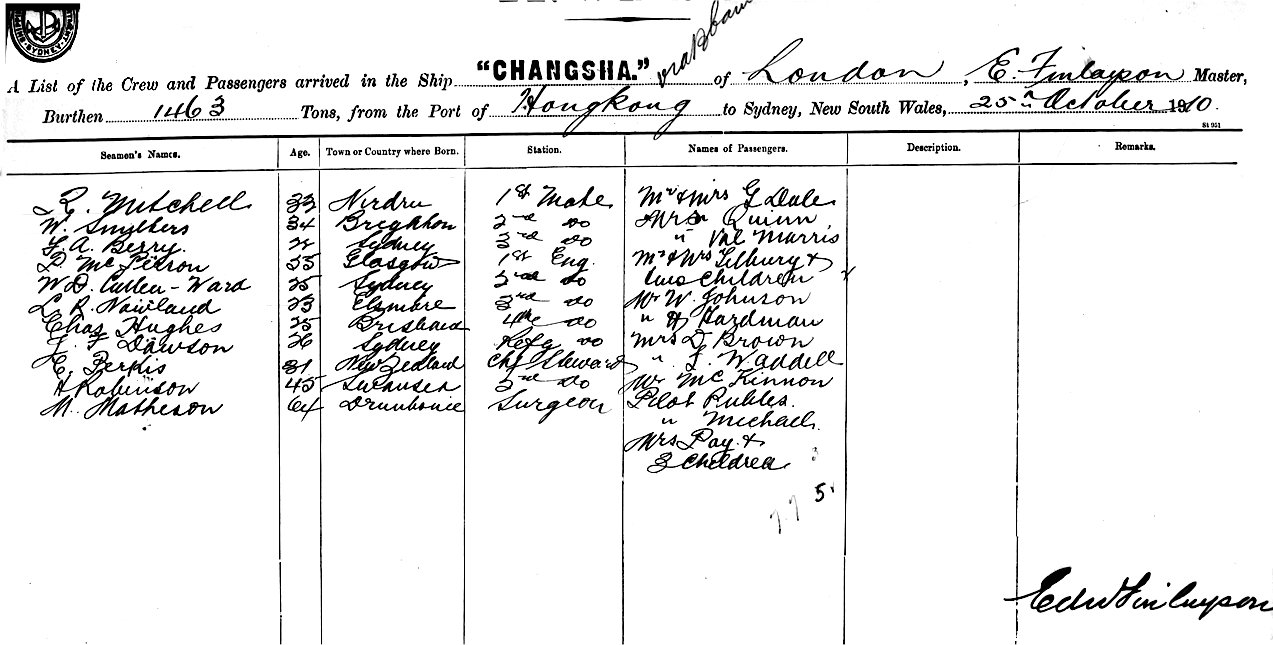 SYDNEY
A List of the Crew and Passengers arrived in the Ship "CHANGSHA." of London, E. Finlayson Master,
Burthen 1463 Tons, from the Port of Hongkong to Sydney, New South Wales, 25th October 1910.
St 951
Seamen's Names. Age. Town or Country where Born. Station. Names of Passengers. Description. Remarks.
R. Mitchell 33 1st Mate Mr & Mrs G Dale
W. Smythers 34 Brighton 2nd do Mrs Quinn
F. A. Berry. Sydney 3rd do " Val Marris
Glasgow 1st Eng. Mr & Mrs Tilbury &
W. D. Cullen-Ward 25 Sydney 2nd do two Children
L. R. Nowland 23 3rd do Mr W. Johnson
Chas Hughes 25 Brisbane 4th do " H Hardman
Dawson 26 Sydney Refg do Mrs D Brown
E. Perkis 31 New Zealand Chf Steward " Waddell
A Robinson 45 Swansea 2nd do Mr McKinnon
M. Matheson 64 Surgeon Pilot
" Michael
Mrs Pay &
3 Children
5
Edw Finlayson